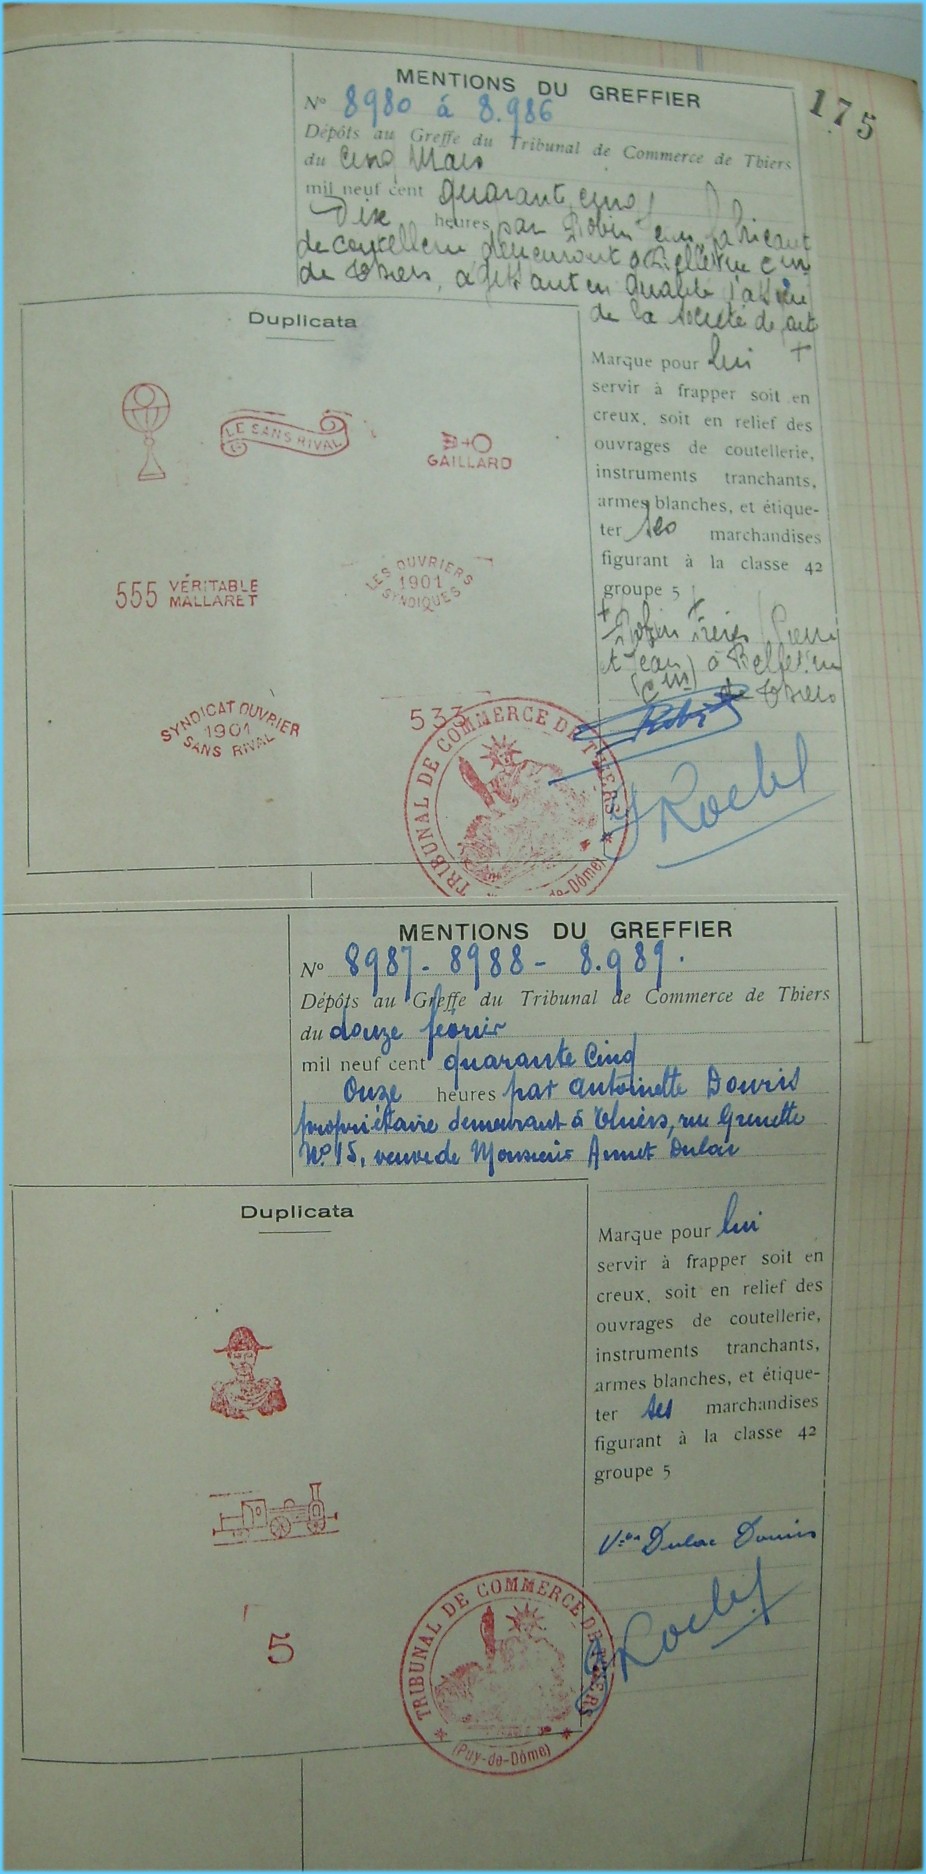 175
MENTIONS DU GREFFIER
N° 8980 à 8.986
Dépôts au Greffe du Tribunal de Commerce de Thiers
du cinq Mars
mil neuf cent quarante cinq
Dix heures par Robin Jean, fabricant
de coutellerie demeurant à Bellevue cne
de Thiers, agissant en qualité
de la société de fait
Duplicata
LE SANS RIVAL
GAILLARD
555 VÉRITABLE
MALLARET
LES OUVRIERS
1901
SYNDIQUÉS
SYNDICAT OUVRIER
1901
SANS RIVAL
533
TRIBUNAL DE COMMERCE DE THIERS
Marque pour lui +
servir à frapper soit en
creux, soit en relief des
ouvrages de coutellerie,
instruments tranchants,
armes blanches, et étique-
ter ses marchandises
figurant à la classe 42
groupe 5
+ Robin Frères (Pierre
et Jean) à Bellevue
(cne de Thiers
MENTIONS DU GREFFIER
N° 8987 - 8988 - 8.989.
Dépôts au Greffe du Tribunal de Commerce de Thiers
du douze février
mil neuf cent quarante cinq
Onze heures par Antoinette Douris
propriétaire demeurant à Thiers, rue Grenette
N° 15, veuve de Monsieur Annet Dulac
Duplicata
5
TRIBUNAL DE COMMERCE DE THIERS
(Puy-de-Dôme)
Marque pour lui
servir à frapper soit en
creux, soit en relief des
ouvrages de coutellerie,
instruments tranchants,
armes blanches, et étique-
ter ses marchandises
figurant à la classe 42
groupe 5
Dulac Douris